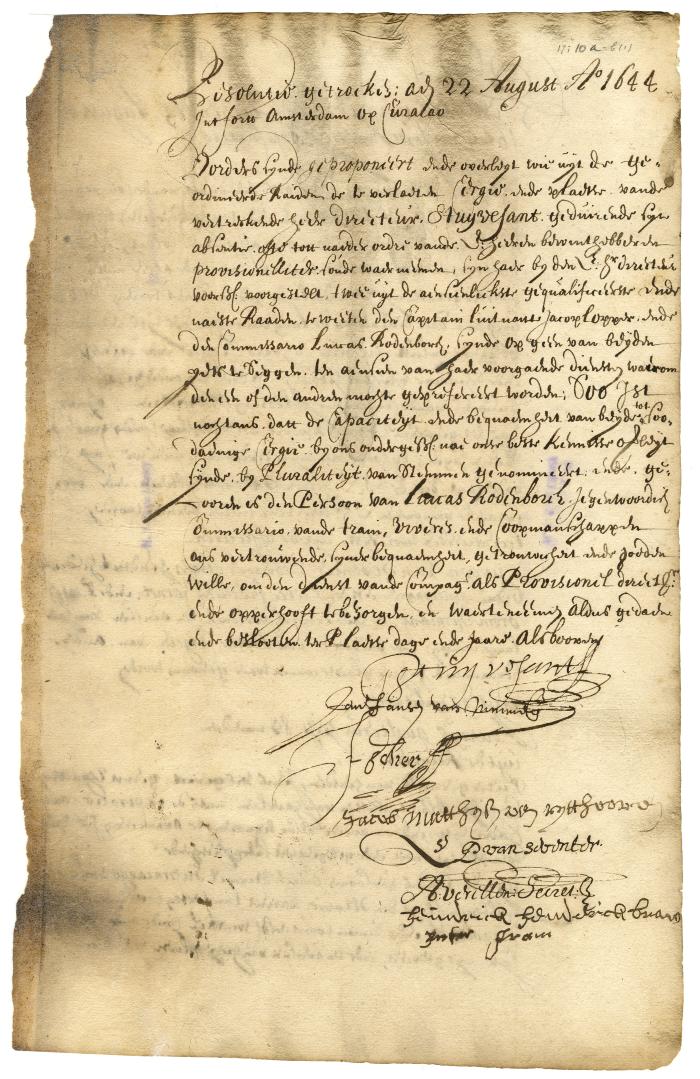 17: 10a-6(1)
Resolutie getrocken: adj 22 August Ao 1644
Int fort Amsterdam op Curacao
Vorders synde geproponeert ende overleyt wie uyt de ge-
ordineerde Raiden de te verlaeten Cergie ende plaetse vande
vertreckende heere directeur Stuyvesant geduirende syn
absentie ofte tott naeder ordre vande heeren bewinthebberen
provisionelliter soude waerneemen, syn haer by den Er: hr directeur
voorsz: voorgestelt, twee uyt de aensienlickste gequalificeerste ende
naeste Raaden, te weeten den Capitain luitnant Jacop Lopper, ende
den Commissario Lucas Rodenborch, synde op geen van beyden
yets te seggen, ten aensien van haere voorgaende diensten waerom
den een of den andren mochte geprefereert worden; Soo Ist
nochtans, datt de Capaciteyt ende bequaemheit van beyde tot soo-
daenige Cergie by ons ondergesz: nae onse beste kennisse
synde, by Pluraliteyt van Stemmen genomineert ende ge-
cooren is den Persoon van Lucas Rodenborch Jegenwoordich
Commissario vande train, vivres ende Coopmanschappen
ons vertrouwende synde bequaemheit, getrouwicheit ende gooden
wille, om den dienst vande Compag: als Provisionel direct:r
ende opperhooft te besorgen, en waerteneemen, Aldus gedaen
ende beslooten ter Plaetse dage ende Jaere Als booven
P Stuyvesant
Jan Jansen van
Jacob Matthysz van
D van
Secret:
heindrick heinderick
train